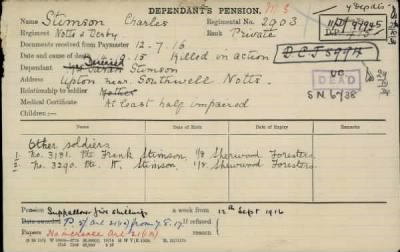 DEPENDANT'S PENSION.
M S
Name Stimson Charles Regimental No. 2903
Regiment Notts & Derby Rank Private
Documents received from Paymaster 12-7-16
Date and cause of death 15 Killed in action
Dependant Sarah Stimson
Address Upton near Southwell Notts.
Relationship to soldier Mother
Medical Certificate At least half impaired
Children:—
DEAD
S N 6/38
Name Date of Birth Date of Expiry Remarks
Other soldiers
1. No. 3181. Pte Frank Stimson, 1/8 Sherwood Foresters
2. No. 3290. Pte. W. Stimson, 1/8 Sherwood Foresters
Pension five shillings a week from 12th Sept 1916
Date awarded 5/- Art 21(1)(a) from 7.8.17 If refused
Papers No increase Art 21(1)(a)